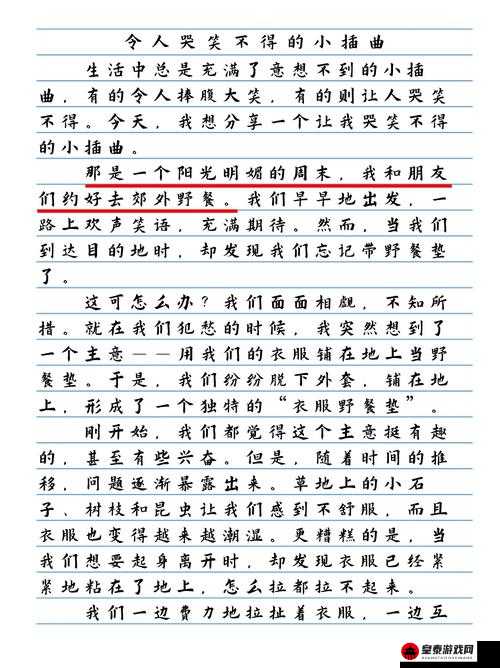 令人哭笑不得的小插曲
生活中总是充满了意想不到的小插
曲，有的令人捧腹大笑，有的则让人哭笑
不得。今天，我想分享一个让我哭笑不得
的小插曲。
那是一个阳光明媚的周末，我和朋友
们约好去郊外野餐。我们早早地出发，一
路上欢声笑语，充满期待。然而，当我们
到达目的地时，却发现我们忘记带野餐垫
了。
这可怎么办？我们面面相觑，不知所
措。就在我们犯愁的时候，我突然想到了
一个主意——用我们的衣服铺在地上当野
餐垫。于是，我们纷纷脱下外套，铺在地
上，形成了一个独特的“衣服野餐垫”。
刚开始，我们都觉得这个主意挺有趣
的，甚至有些兴奋。但是，随着时间的推
移，问题逐渐暴露出来。草地上的小石
子、树枝和昆虫让我们感到不舒服，而且
衣服也变得越来越潮湿。更糟糕的是，当
我们想要起身离开时，却发现衣服已经紧
紧地粘在了地上，怎么拉都拉不起来。
我们一边费力地拉扯着衣服，一边互
皇泰游戏网